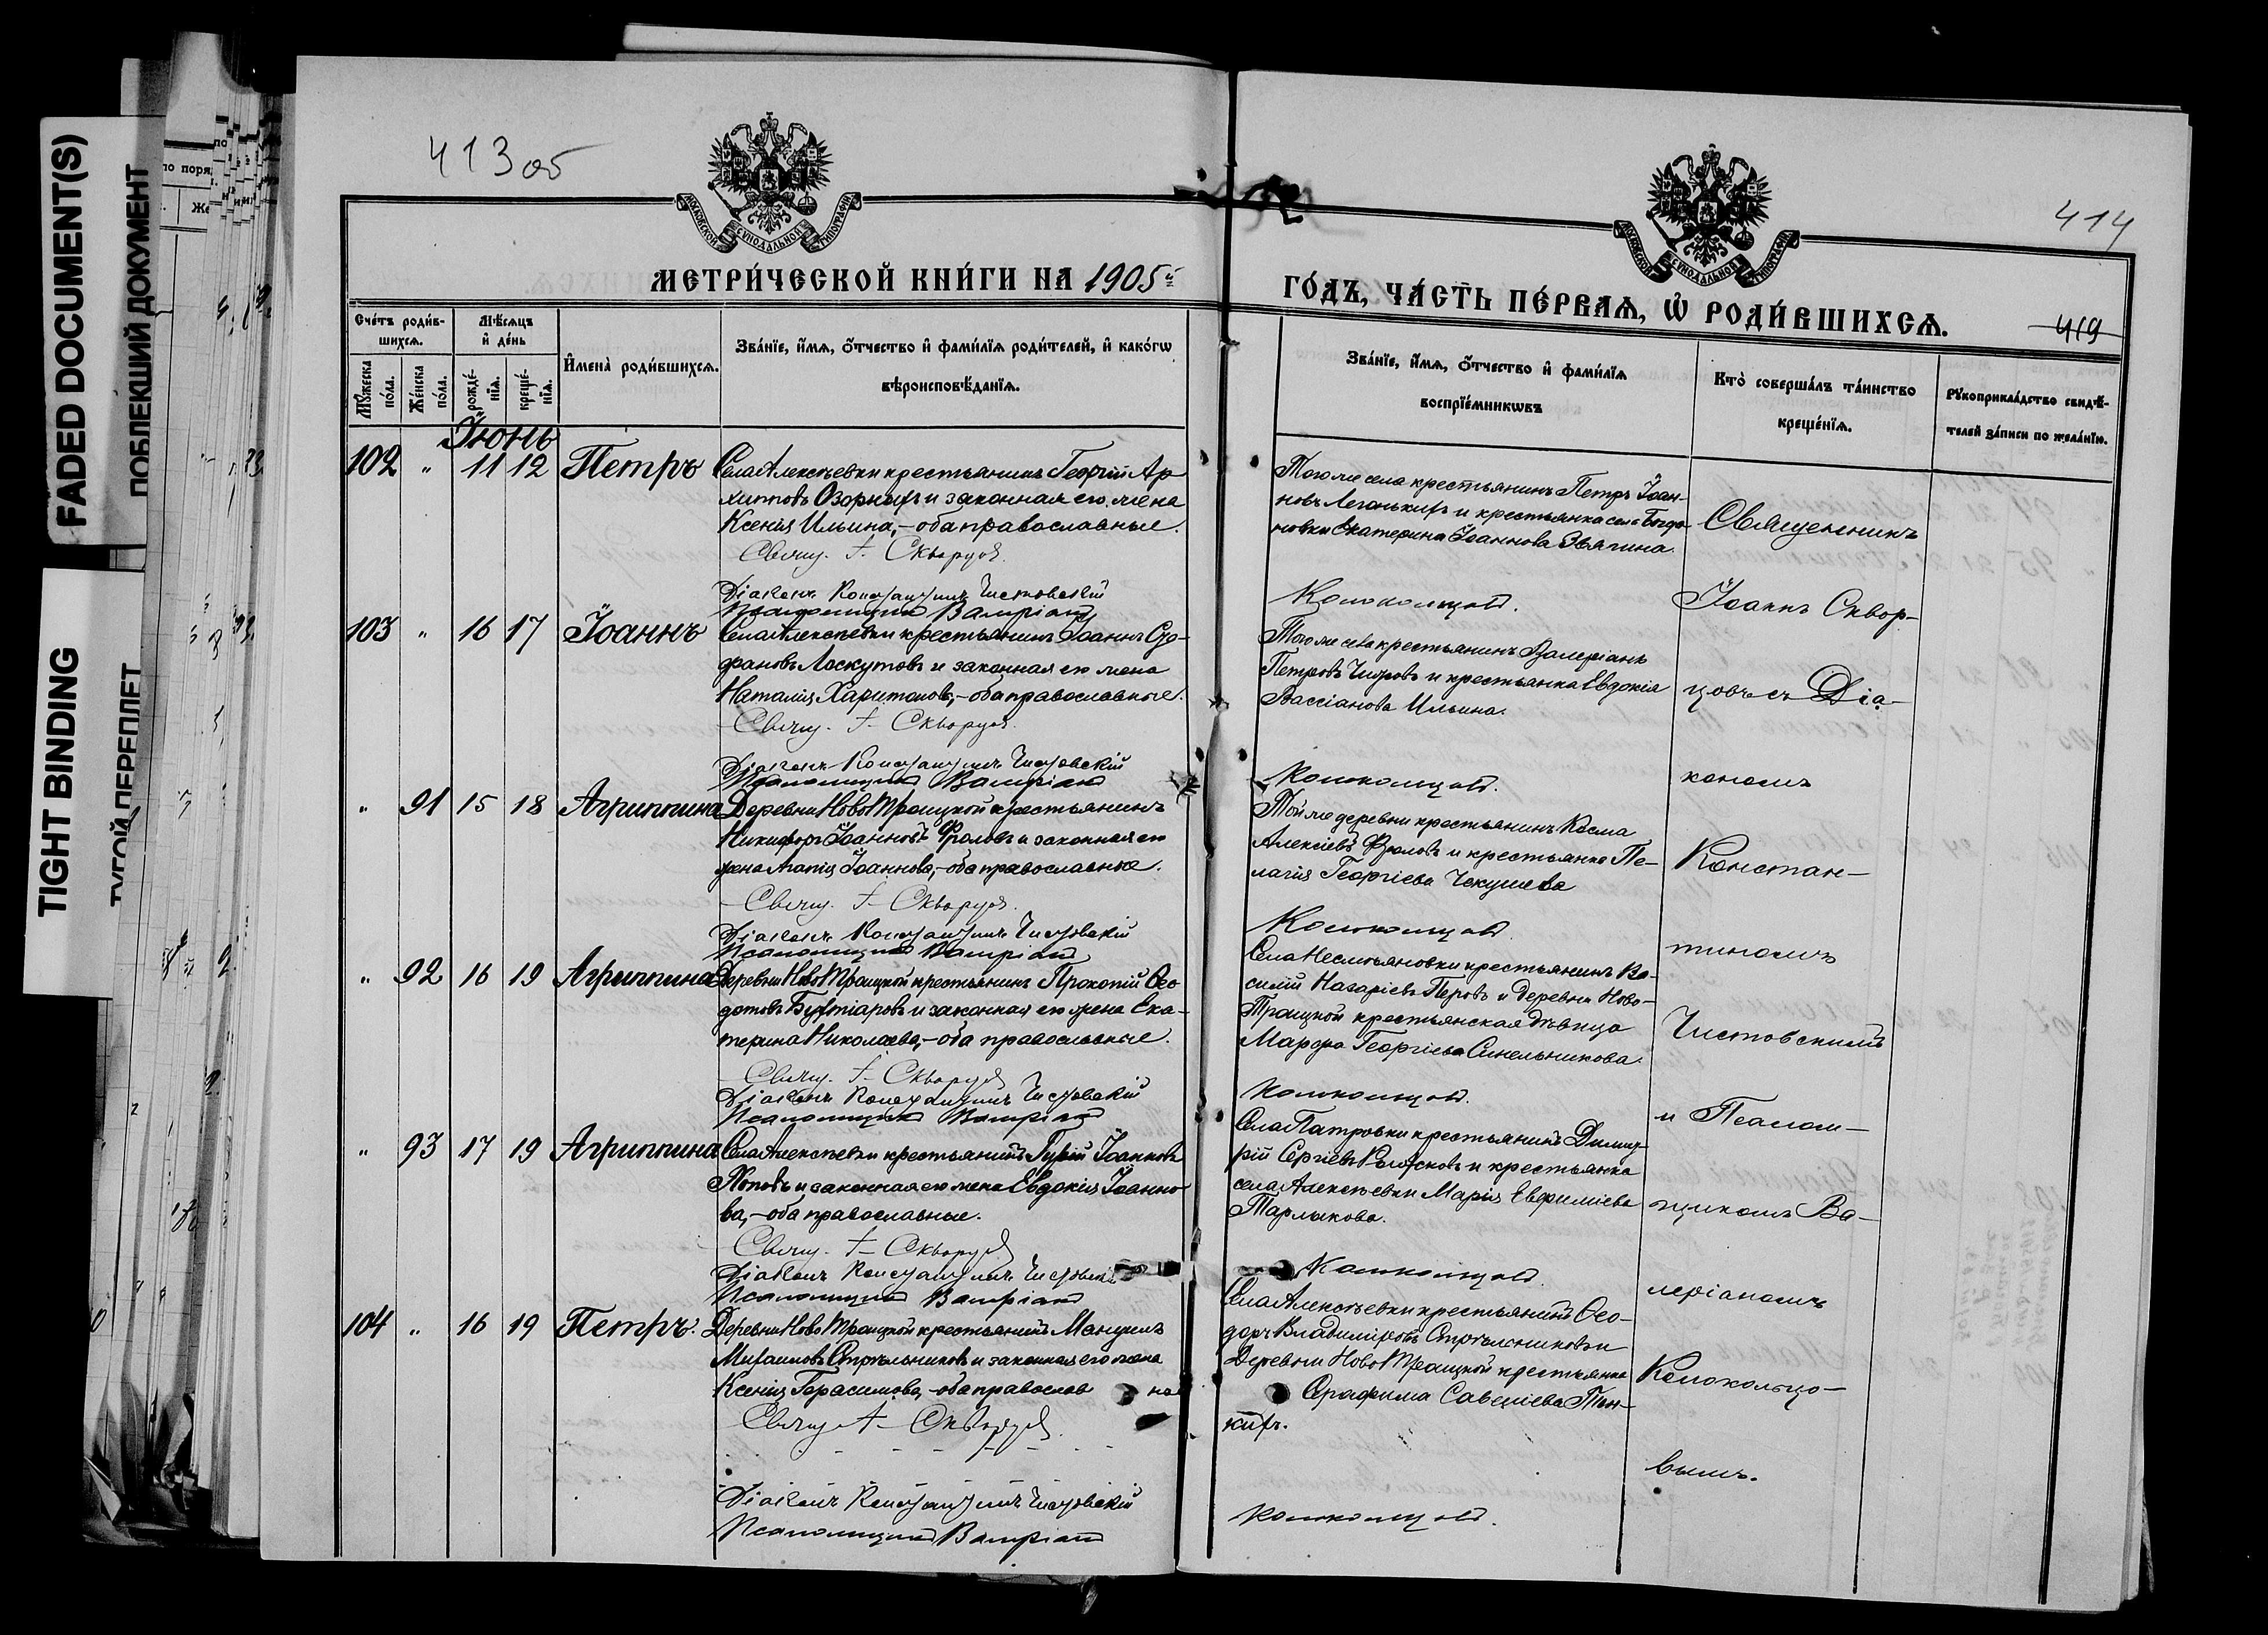 FADED DOCUMENT(S)
ПОБЛЕКШИЙ ДОКУМЕНТ
TIGHT BINDING
ТУГОЙ ПЕРЕПЛЕТ
413 об
414
419
МЕТРИ́ЧЕСКОЙ КНИ́ГИ НА 1905й
ГО́ДЪ, ЧА́СТЬ ПЕ́РВАѦ, Ѡ҆ РОДИ́ВШИХСѦ.
Сче́тъ роди́в-
шихсѧ.
Мѣ́сѧцъ
и҆ де́нь
И҆мена̀ роди́вшихсѧ.
Зва́нїе, и҆́мѧ, ѻ҆́тчество и҆ фами́лїѧ роди́телей, и҆ како́гѡ
вѣроисповѣ́данїѧ.
Мꙋ́жеска
по́ла.
Же́нска
по́ла.
рожде́-
нїѧ.
креще́-
нїѧ.
Зва́нїе, и҆́мѧ, ѻ҆́тчество и҆ фами́лїѧ
воспрїе́мникѡвъ
Кто̀ соверша́лъ та́инство
креще́нїѧ.
Рꙋкоприкла́дство свидѣ́-
телей за́писи по жела́нїю.
Іюнь
102 " 11 12 Петръ
Села Алексѣевки крестьянинъ Георгій Ар-
хиповъ Озорныхъ и законная его жена
Ксенія Ильина, – оба православные.
Свящ. І. Скворцов
Діаконъ Константинъ Чистовскій
Псаломщикъ Валеріанъ
Того же села крестьянинъ Петръ Іоан-
новъ Легонькихъ и крестьянка села Богда-
новки Екатерина Іоаннова Звягина.
Колокольцовъ.
103 " 16 17 Іоаннъ
Села Алексѣевки крестьянинъ Іоаннъ Сте-
фановъ Лоскутовъ и законная его жена
Наталія Харитонова, – оба православные.
Свящ. І. Скворцов
Діаконъ Константинъ Чистовскій
Псаломщикъ Валеріанъ
Того же села крестьянинъ Валеріанъ
Петровъ и крестьянка Евдокія
Вассіанова Ильина.
Колокольцовъ.
" 91 15 18 Агриппина
Деревни Ново Троицкой крестьянинъ
Никифоръ Іоанновъ Фроловъ и законная его
жена Іоаннова, – оба православные.
Свящ. І. Скворцов
Діаконъ Константинъ Чистовскій
Псаломщикъ Валеріанъ
Той же деревни крестьянинъ Косма
Алексіевъ Фроловъ и крестьянка Пе-
лагія Георгіева Чекушева
Колокольцовъ
" 92 16 19 Агриппина
Деревни Ново Троицкой крестьянинъ Прокопій Ѳео-
дотовъ и законная его жена Ека-
терина Николаева, – оба православные.
Свящ. І. Скворцов
Діаконъ Константинъ Чистовскій
Псаломщикъ Валеріанъ
Села Несмѣяновки крестьянинъ Ва-
силій Назаріевъ Перовъ и деревни Ново-
Троицкой крестьянская дѣвица
Марѳа Георгіева Синельникова.
Колокольцовъ.
" 93 17 19 Агриппина
Села Алексѣевки крестьянинъ Гурій Іоанновъ
Поповъ и законная его жена Евдокія Іоанно-
ва, – оба православные.
Свящ. І. Скворцов
Діаконъ Константинъ Чистовскій
Псаломщикъ Валеріанъ
Села Патровки крестьянинъ Димит-
рій Сергіевъ и крестьянка
села Алексѣевки Марія Евфиміева
Тарлыкова.
Колокольцовъ.
104 " 16 19 Петръ.
Деревни Ново Троицкой крестьянинъ Мануилъ
Михаиловъ Стрѣльниковъ и законная его жена
Ксенія Герасимова, – оба православ
Свящ. І. Скворцов
Діаконъ Константинъ Чистовскій
Псаломщикъ Валеріанъ
Села Алексѣевки крестьянинъ Ѳео-
доръ Владиміровъ Стрѣльниковъ и
Деревни Ново Троицкой крестьянка
Серафима Савеліева Тон-
кихъ.
Колокольцовъ.
Священникъ
Іоаннъ Сквор-
цовъ съ Діа-
кономъ
Констан-
тиномъ
Чистовскимъ
и Псалом-
щикомъ Ва-
леріаномъ
Колокольцо-
вымъ.